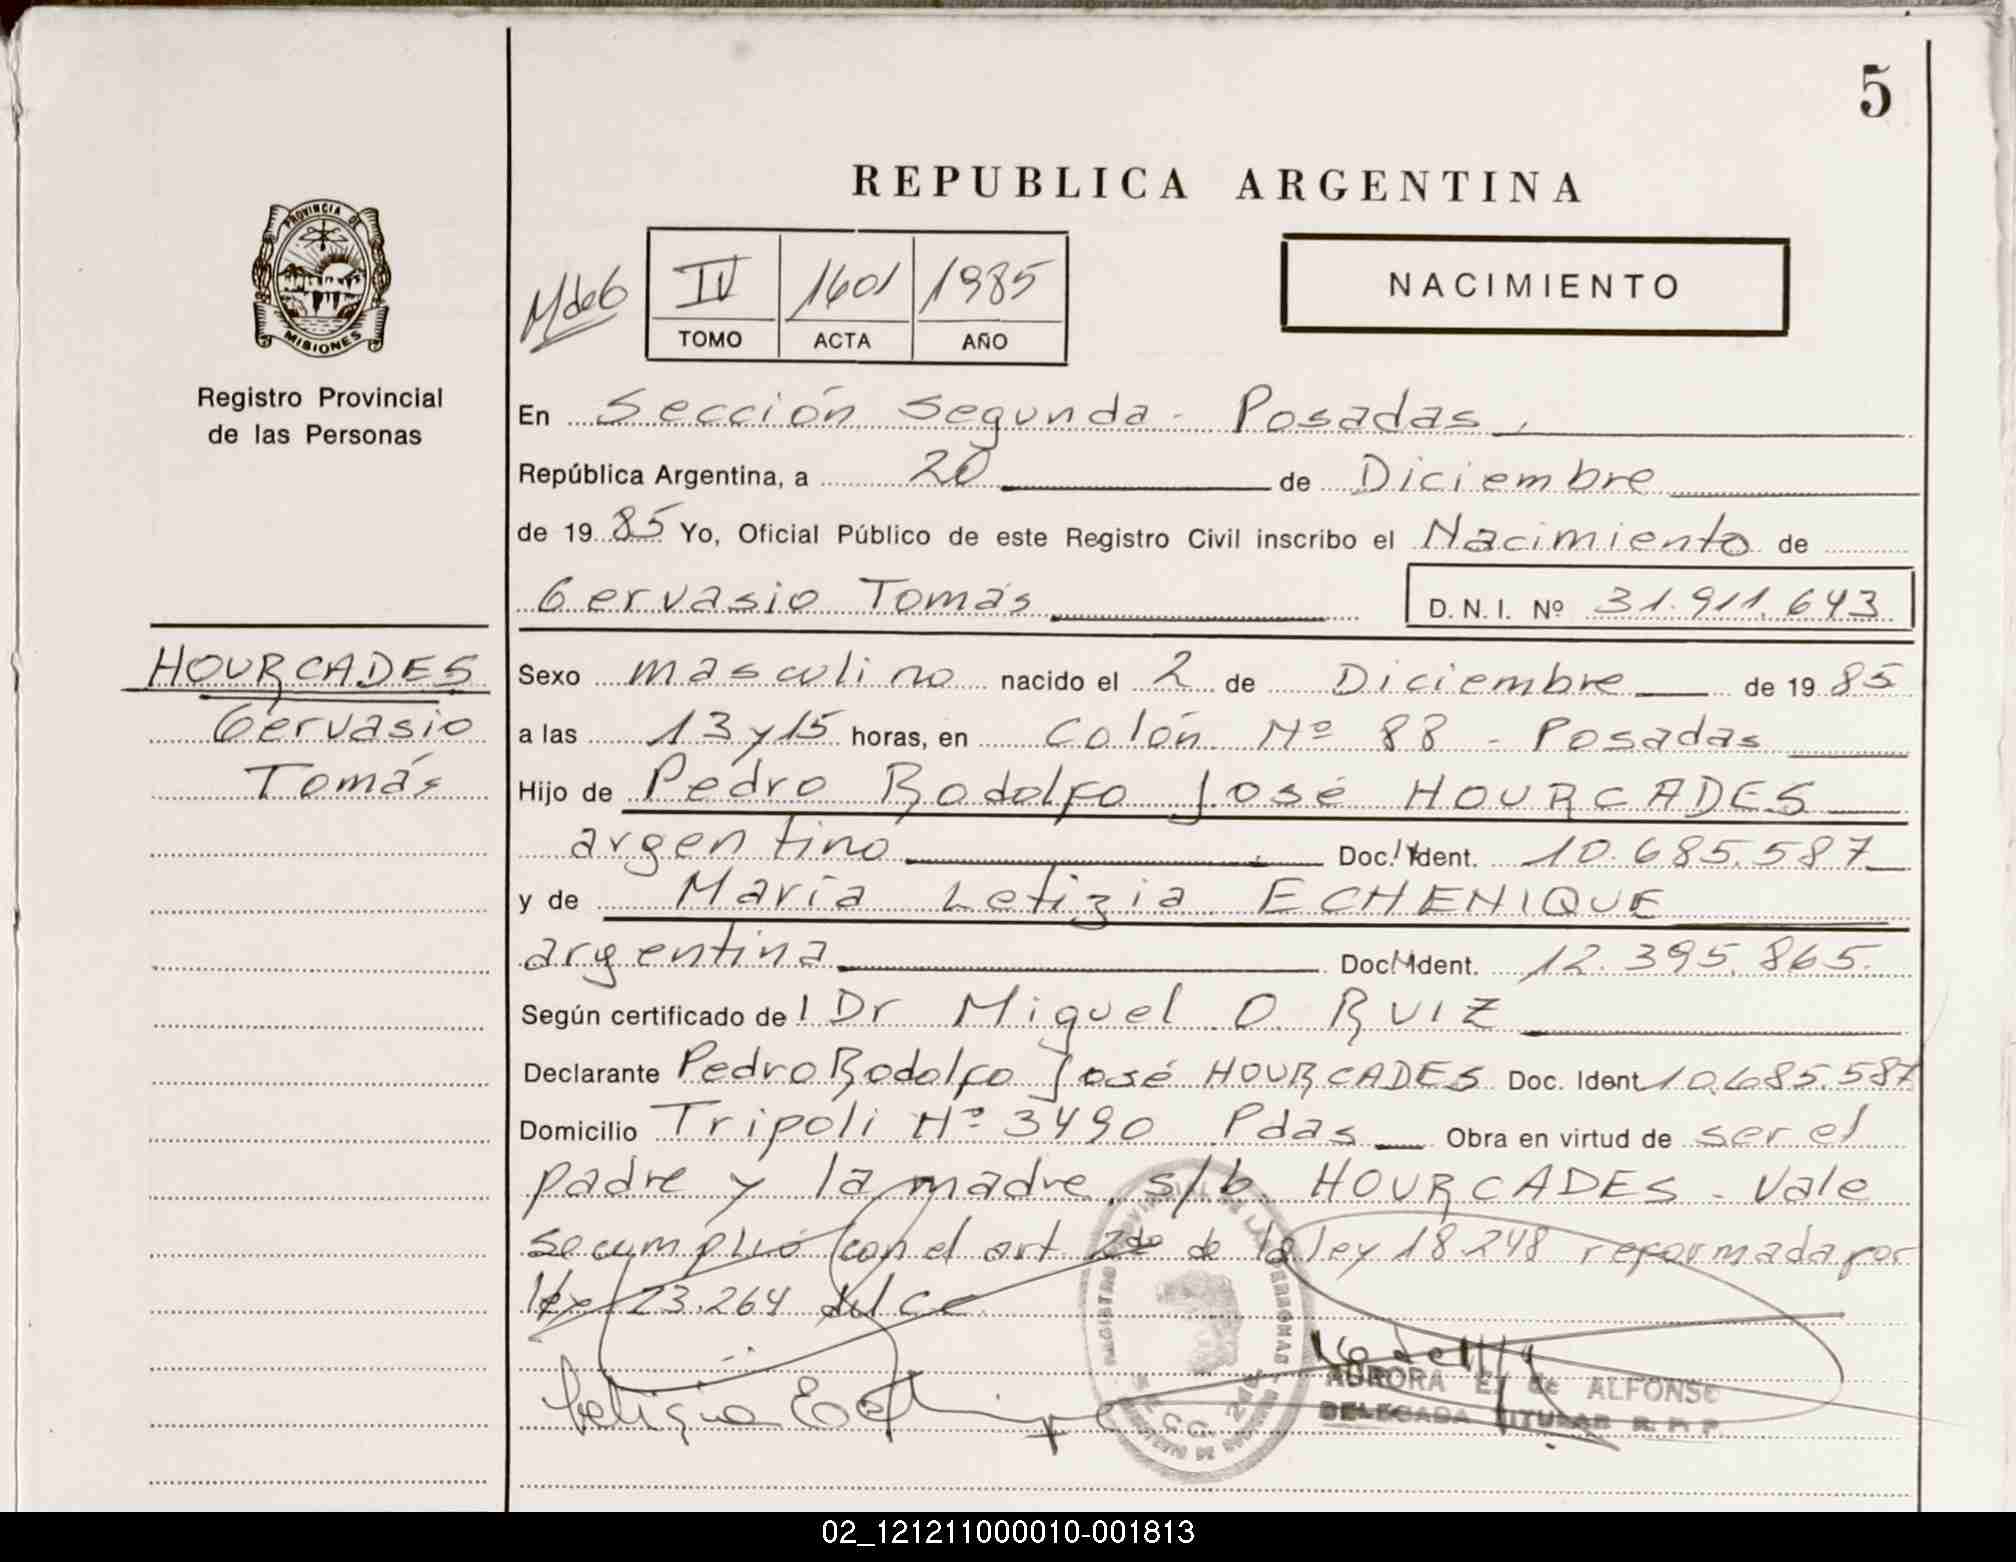 5
REPUBLICA ARGENTINA
PROVINCIA DE
MISIONES
Registro Provincial
de las Personas
IV 1601 1985
TOMO ACTA AÑO
NACIMIENTO
En Sección Segunda - Posadas,
República Argentina, a 20 de Diciembre
de 1985 Yo, Oficial Público de este Registro Civil inscribo el Nacimiento de
Gervasio Tomás D. N. I. Nº 31.911.643
HOURCADES
Gervasio
Tomás
Sexo masculino nacido el 2 de Diciembre de 1985
a las 13 y 15 horas, en Colón Nº 88 - Posadas
Hijo de Pedro Rodolfo José HOURCADES
argentino Doc. Ident. 10.685.587
y de María Letizia ECHENIQUE
argentina Doc. Ident. 12.395.865.
Según certificado del Dr Miguel O. RUIZ
Declarante Pedro Rodolfo José HOURCADES Doc. Ident 10.685.587
Domicilio Tripoli Nº 3490 Pdas Obra en virtud de ser el
padre y la madre s/b. HOURCADES - Vale
se cumplió con el art. 2do de la ley 18.248 reformada por
ley 23.264 del
AURORA E. de ALFONSO
DELEGADA TITULAR R. P. P.
02_121211000010-001813